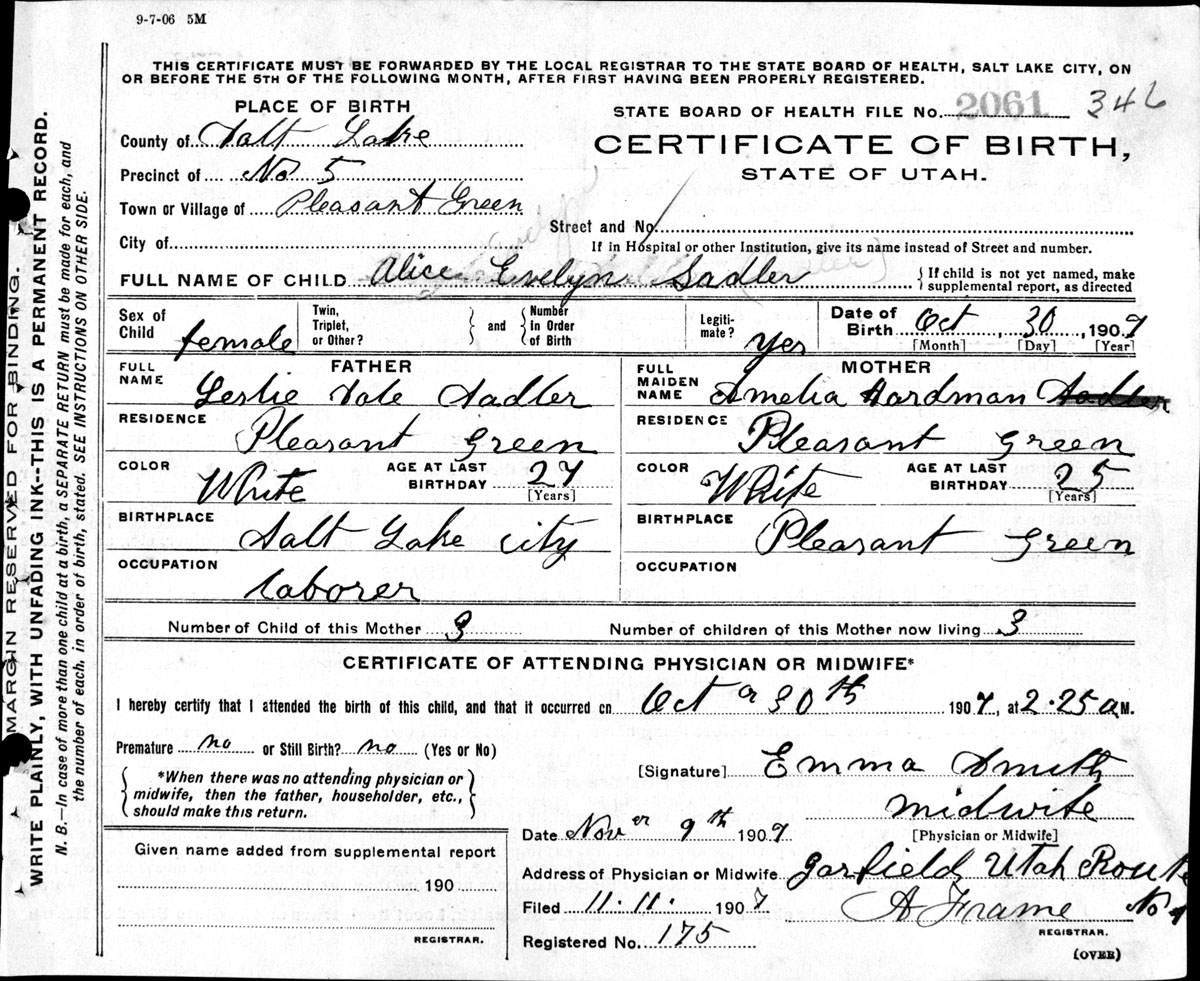 9-7-06 5M
THIS CERTIFICATE MUST BE FORWARDED BY THE LOCAL REGISTRAR TO THE STATE BOARD OF HEALTH, SALT LAKE CITY, ON
OR BEFORE THE 5TH OF THE FOLLOWING MONTH, AFTER FIRST HAVING BEEN PROPERLY REGISTERED.
PLACE OF BIRTH
STATE BOARD OF HEALTH FILE No. 2061 346
County of Salt Lake
CERTIFICATE OF BIRTH,
Precinct of No 5
STATE OF UTAH.
Town or Village of Pleasant Green
Street and No.
City of
If in Hospital or other Institution, give its name instead of Street and number.
FULL NAME OF CHILD Alice Evelyn Sadler
{If child is not yet named, make
supplemental report, as directed
Sex of Child female
Twin, Triplet, or Other? } and { Number in Order of Birth
Legiti-mate? yes
Date of Birth Oct, 30, 1909
[Month] [Day] [Year]
FATHER
FULL NAME Leslie Dale Sadler
RESIDENCE Pleasant Green
COLOR White AGE AT LAST BIRTHDAY 27
[Years]
BIRTHPLACE Salt Lake City
OCCUPATION laborer
MOTHER
FULL MAIDEN NAME Amelia Hardman Sadler
RESIDENCE Pleasant Green
COLOR White AGE AT LAST BIRTHDAY 25
[Years]
BIRTHPLACE Pleasant Green
OCCUPATION
Number of Child of this Mother 3
Number of children of this Mother now living 3
CERTIFICATE OF ATTENDING PHYSICIAN OR MIDWIFE*
I hereby certify that I attended the birth of this child, and that it occurred on Oct 30th 1909, at 2.25 a M.
Premature no or Still Birth? no (Yes or No)
{*When there was no attending physician or
midwife, then the father, householder, etc.,
should make this return.}
[Signature] Emma Smith
midwife
[Physician or Midwife]
Date Nov er 9th 1909
Given name added from supplemental report
190
REGISTRAR.
Address of Physician or Midwife Garfield Utah Route No 1
Filed 11.11. 1909 A Frame
REGISTRAR.
Registered No. 175
(OVER)
MARGIN RESERVED FOR BINDING.
WRITE PLAINLY, WITH UNFADING INK--THIS IS A PERMANENT RECORD.
N. B.—In case of more than one child at a birth, a SEPARATE RETURN must be made for each, and
the number of each, in order of birth, stated. SEE INSTRUCTIONS ON OTHER SIDE.